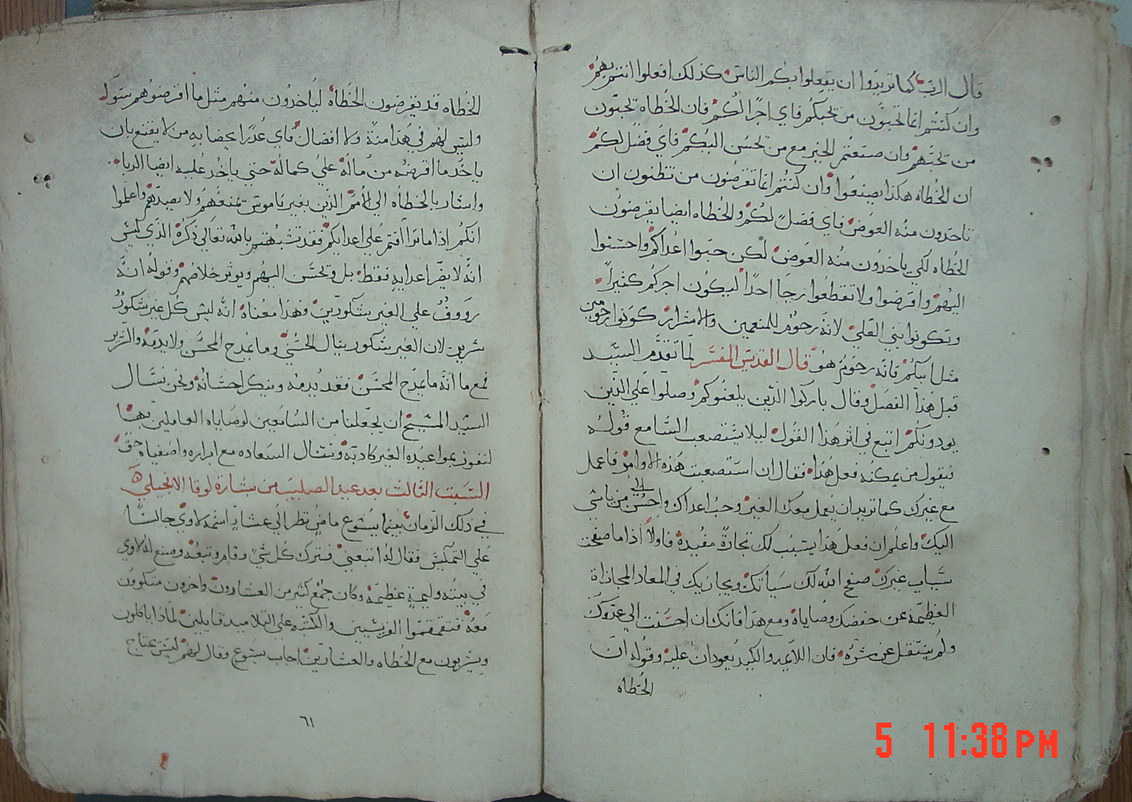 قال الرب كما تريدوا ان يفعلوا بكم الناس كذلك افعلوا انتم بهم
وان كنتم انما تحبون من يحبكم فاي اجر لكم فان الخطاه يحبون
من يحبهم وان صنعتم الخير مع من يحسن اليكم فاي فضل لكم
ان الخطاه هكذا يصنعوا وان كنتم انما تقرضون من تظنون ان
تاخدون منه العوض فاي فضل لكم والخطاه ايضا يقرضون
الخطاه لكي ياخدون منه العوض لكن حبوا اعداكم واحسنوا
اليهم واقرضوا ولا تقطعوا رجا احدا ليكون اجركم كثيرا
وتكونوا بني العلي لانه رحوم للمنعمين والاشرار كونوا رحومين
مثل ابيكم فانه رحوم هو قال القديس المفسر لما تقدم السيد
قبل هذا الفصل وقال باركوا الذين يلعنوكم وصلوا علي الذين
يودونكم اتبع في اثر هذا القول ليلا يستصعب السامع قوله
فيقول من يمكنه فعل هذا فقال ان استصعبت هذه الاوامر فاعمل
مع غيرك كما تريد ان يعمل معك الغير وحب اعداك واحسن الي من ياسي
اليك واعلم ان فعل هذا يسبب لك تجارة مفيدة فاولا اذا ما صفحت
سيات غيرك صفح الله لك سياتك ويجازيك في المعاد المجازاة
العظيمة عن حفضك وصاياه ومع هذا فانك ان احسنت الي عدوك
ولم ينتقل عن شره فان اللايمه والكيد يعودان عليه وقوله ان
الخطاه
الخطاه قد يقرضون الخطاه لياخدون منهم مثل ما اقرضوهم سوا
وليس لهم في هذا منة ولا افضال فاي عدر ايضا به من لا يقنع بان
ياخد ما اقرضه من ماله علي كماله حتي ياخد عليه ايضا الربا
واشار بالخطاه الي الامم الذين بغير ناموس يمنعهم ولا يصدهم واعلموا
انكم اذا ما ترافتم علي اعدايكم فقد تشبهتم بالله تعالي ذكره الذي ليس
انه لا يضر اعدايه فقط بل ويحسن اليهم ويوثر خلاصهم وقوله انه
رووف علي الغير شكورين وهذا معناه انه ليس كل غير شكور
شرير لان الغير شكور ينال الحسن وما يمدح المحسن ولا يدمه والشرير
مع ما انه ما يمدح المحسن فقد يدمه وينكر احسانه ونحن نسال
السيد المسيح ان يجعلنا من السامعين لوصاياه العاملين بها
لنفوز بمواعيده الغير كادبة وننال السعاده مع ابراره واصفياه حقا
السبت الثالث بعد عيد الصليب من بشارة لوقا الانجيلي
في ذلك الزمان بينما يسوع مار نظر الي عشار اسمه لاوي جالسا
علي التمكس فقال له اتبعني فترك كل شي وقام وتبعه وصنع له لاوي
في بيته وليمة عظيمه وكان جمع كثير من العشارون واخرون متكوون
معه فتقمقموا الفريسيين والكتبه علي التلاميد قايلين لماذا ياكلون
ويشربون مع الخطاه والعشارين اجاب يسوع وقال لهم ليس يحتاج
٦١
5 11:38 PM